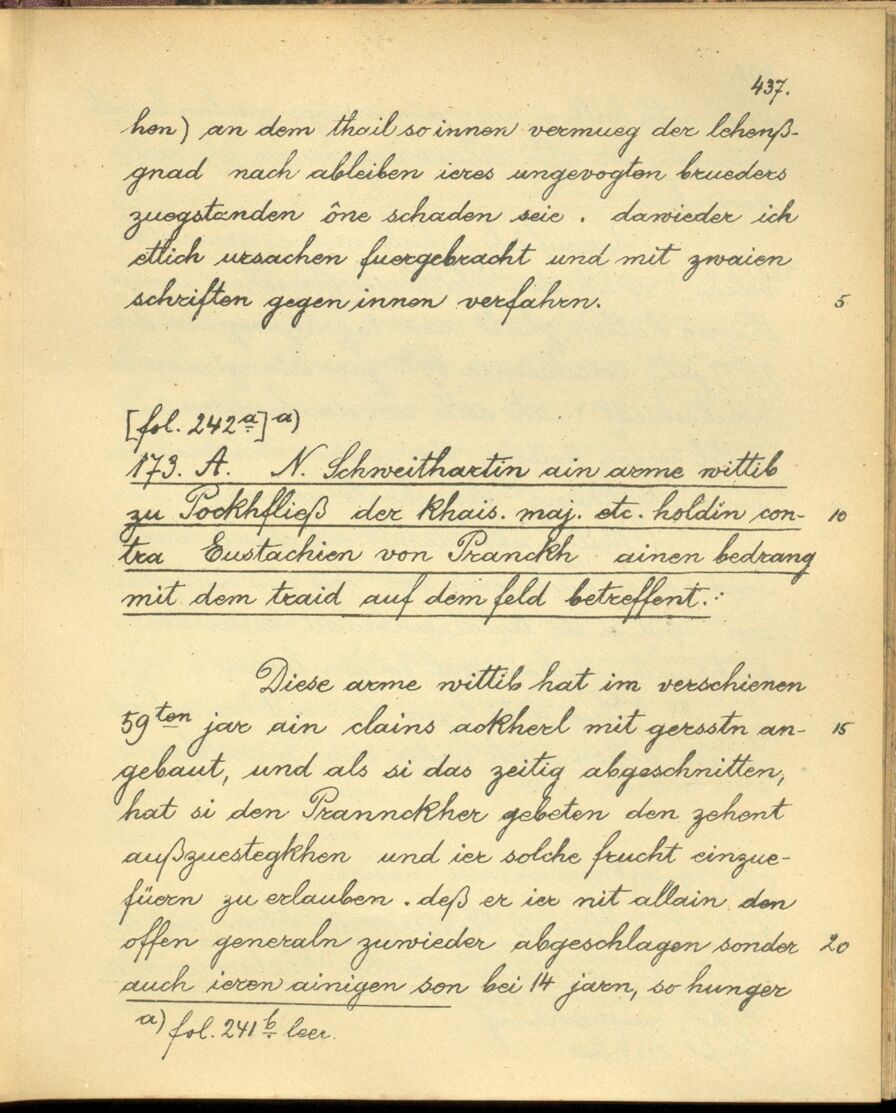 437.
hen) an dem thail so innen vermueg der lehenß-
gnad nach ableiben ieres ungevogten brueders
zuegstanden ône schaden seie . dawieder ich
etlich ursachen fuergebracht und mit zwaien
schriften gegen innen verfahrn. 5
[fol. 242a] a)
173. A. N. Schweithartin ain arme wittib
zu Pockhfließ der khais. maj. etc. holdin con- 10
tra Eustachien von Pranckh ainen bedrang
mit dem traid auf dem feld betreffent.:
Diese arme wittib hat im verschienen
59ten jar ain clains ackherl mit gersstn an- 15
gebaut, und als si das zeitig abgeschnitten,
hat si den Prannckher gebeten den zehent
außzuestegkhen und ier solche frucht einzue-
füern zu erlauben . deß er ier nit allain den
offen generaln zuwieder abgeschlagen sonder 20
auch ieren ainigen son bei 14 jarn, so hunger
a) fol. 241b leer.